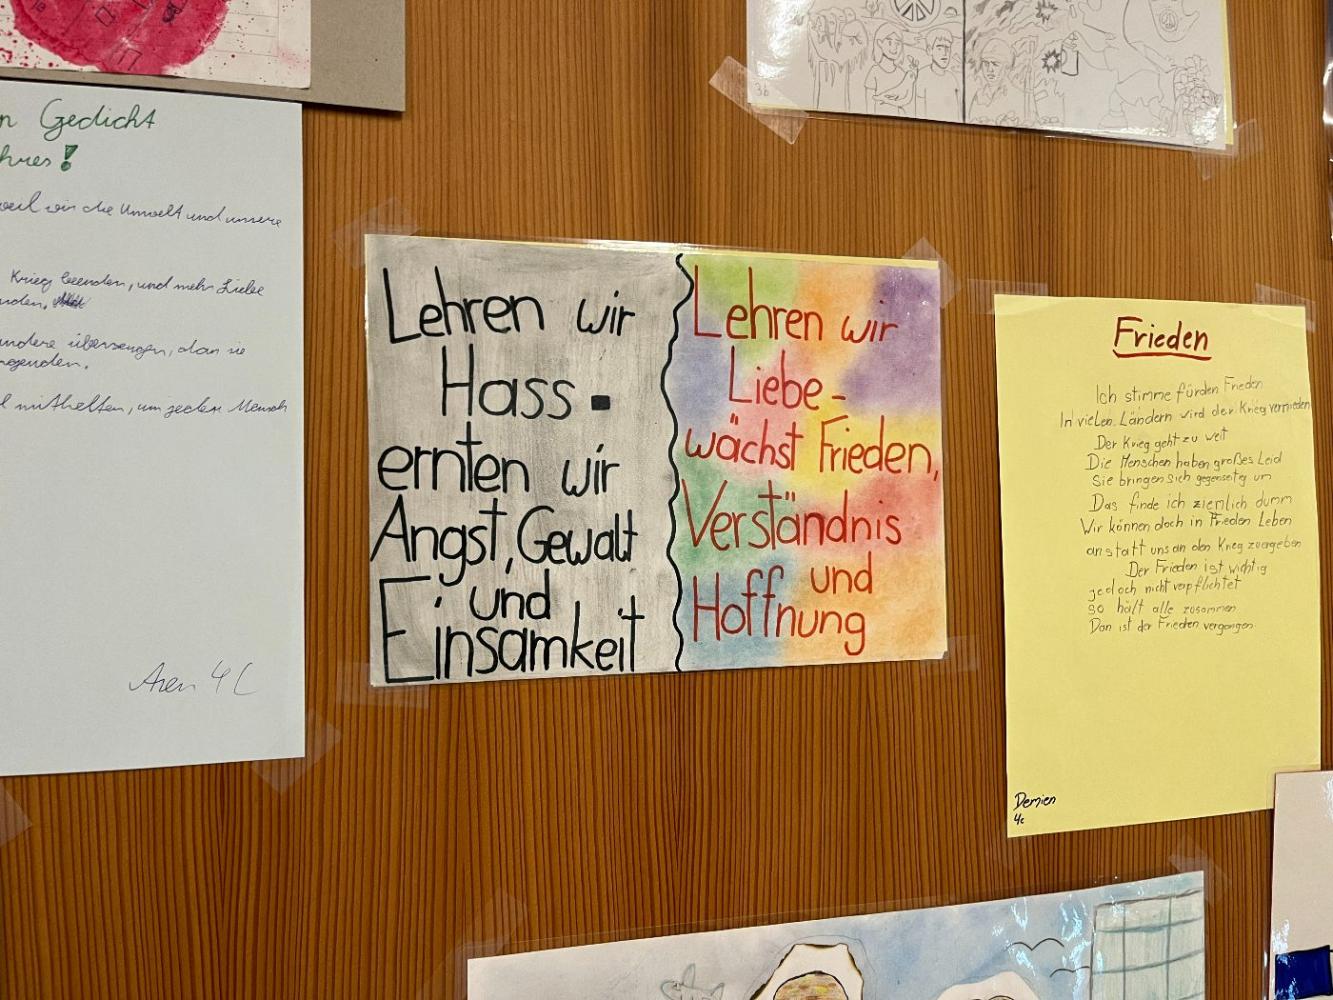 n Gedicht
hres!
weil wir die Umwelt und unsere
Krieg beenden, und mehr Liebe
nden.
andere überzeugen, dan sie
l mithelfen, um jeden Mensch
Aren 4c
Lehren wir
Hass -
ernten wir
Angst, Gewalt
und
Einsamkeit
Lehren wir
Liebe -
wächst Frieden,
Verständnis
und
Hoffnung
36
Frieden
Ich stimme für den Frieden
In vielen Ländern wird der Krieg vermieden
Der Krieg geht zu weit
Die Menschen haben großes Leid
Sie bringen sich gegenseitig um
Das finde ich ziemlich dumm
Wir können doch in Frieden Leben
anstatt uns an den Krieg zu ergeben
Der Frieden ist wichtig
jedoch nicht verpflichtet
so hält alle zusammen
Dan ist der Frieden vergangen
Demien
4c